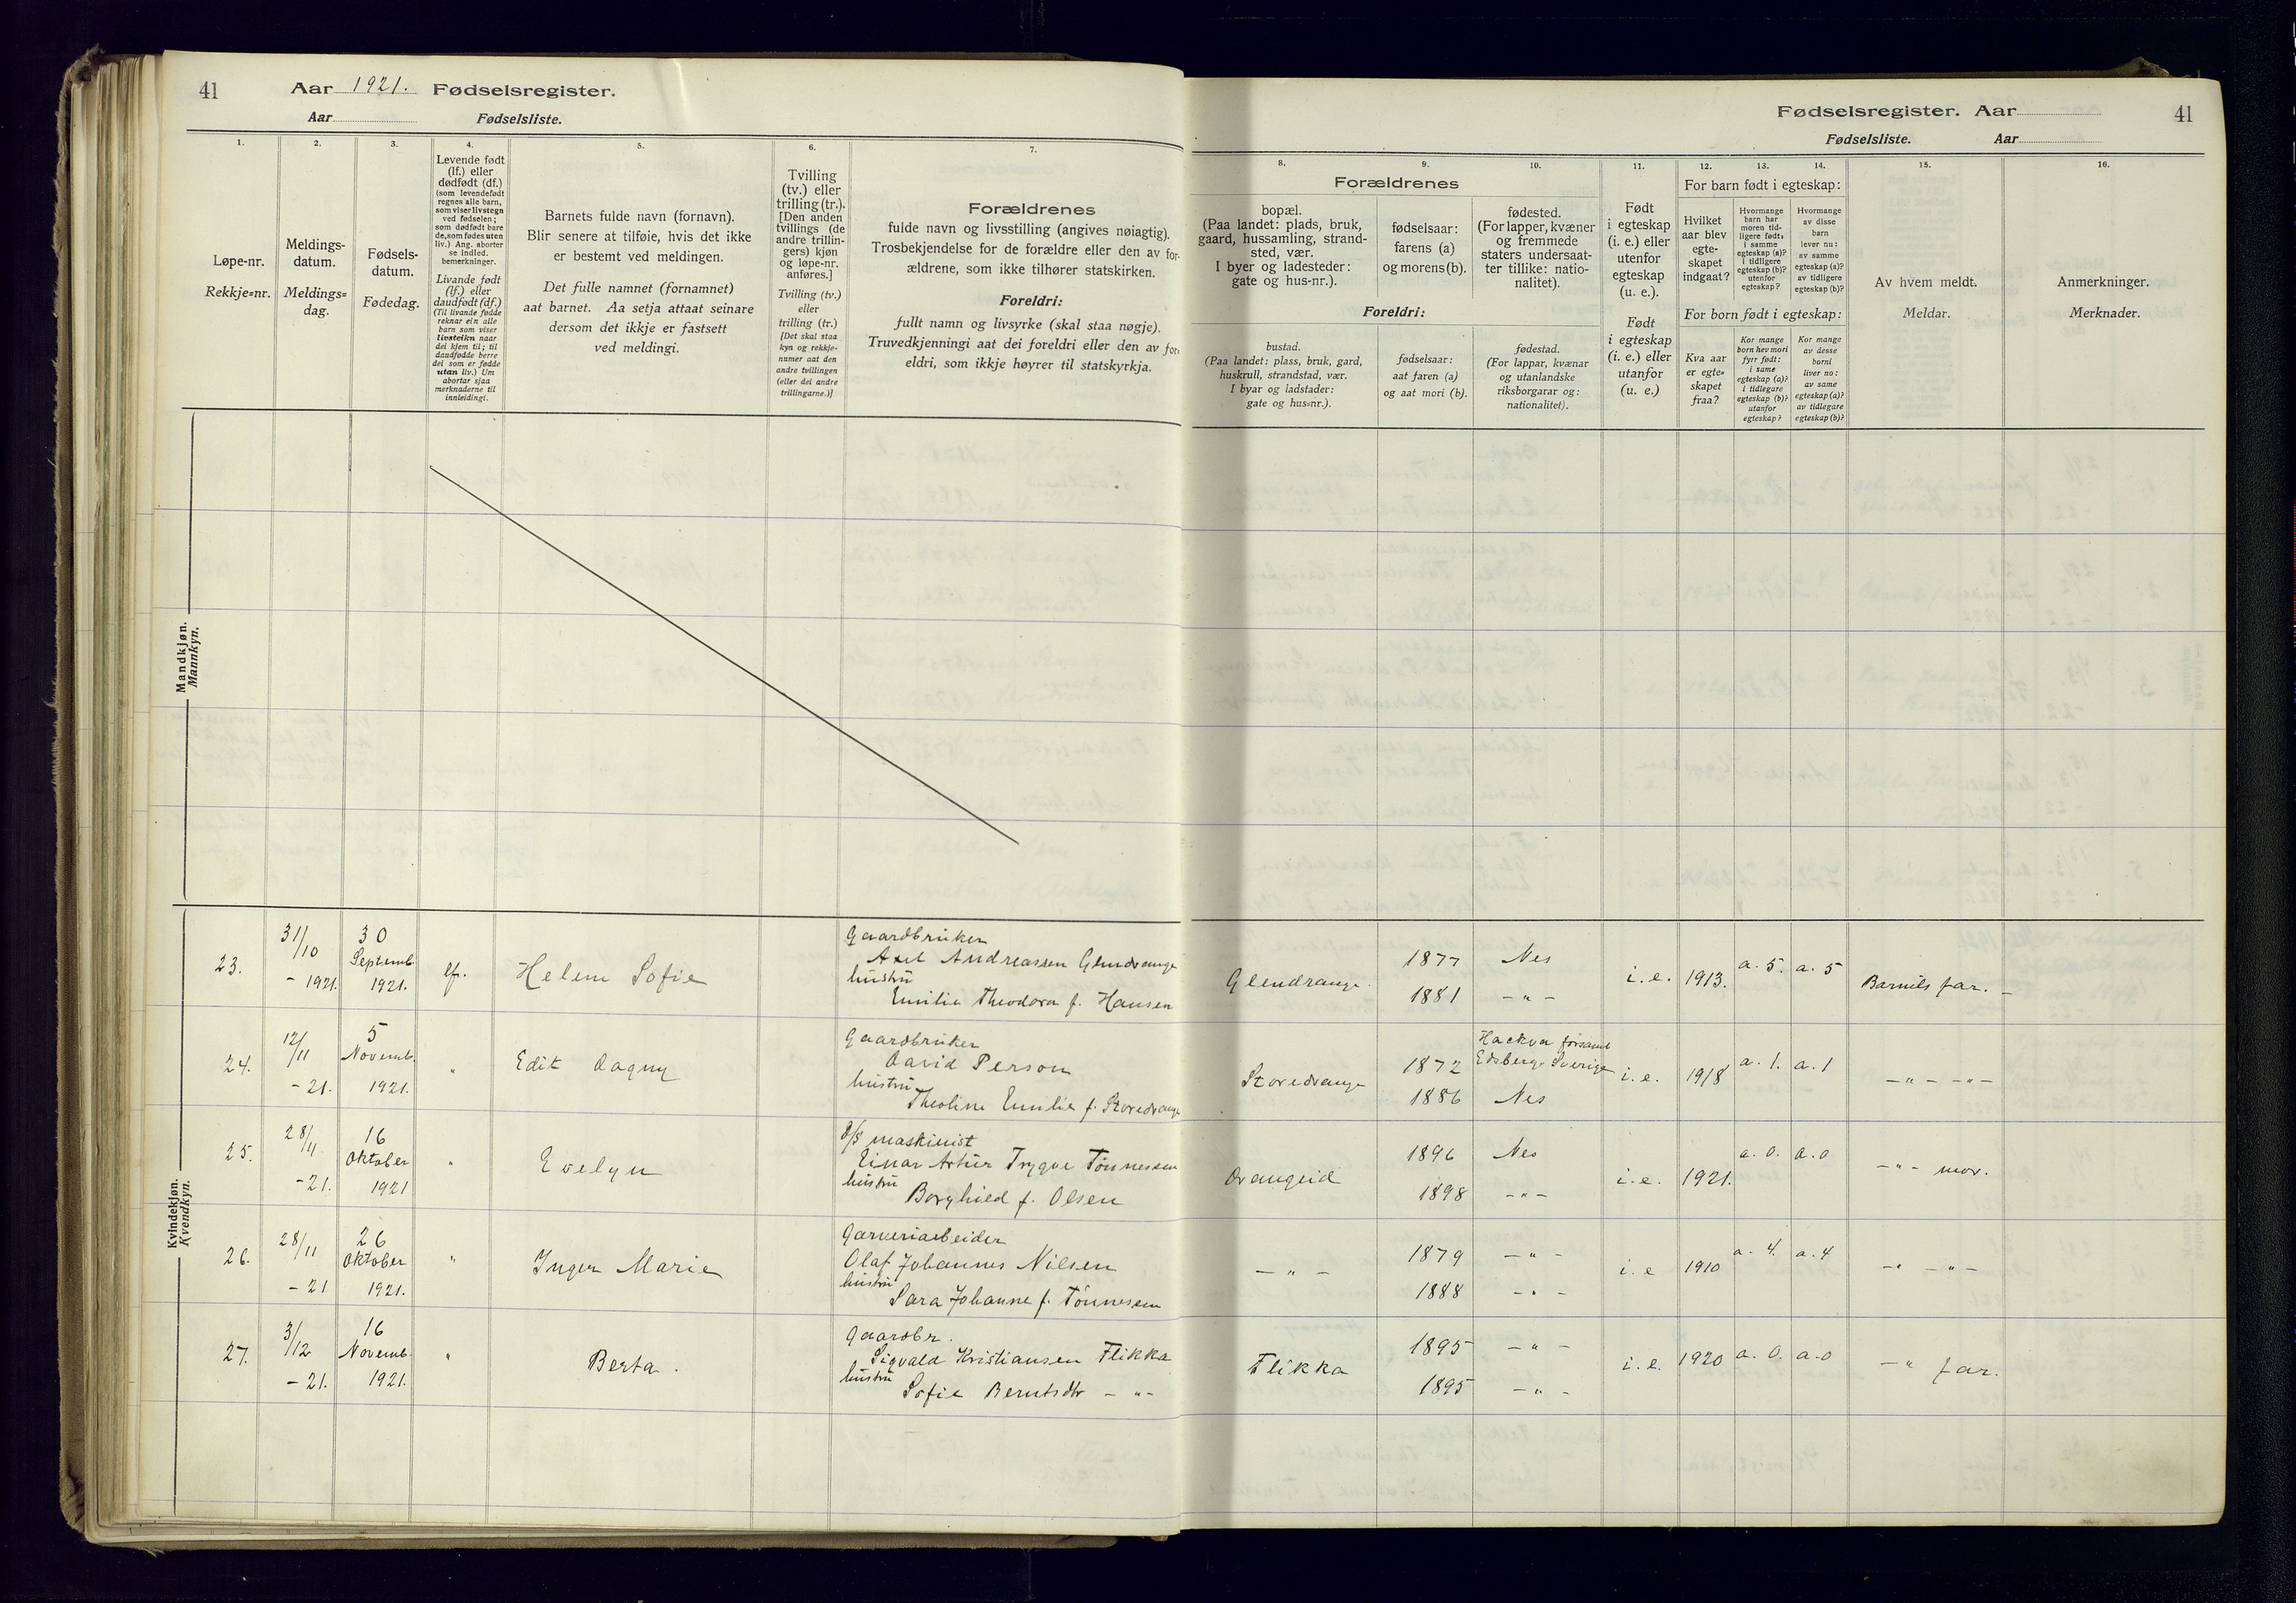 41 Aar 1921. Fødselsregister.
Aar Fødselsliste.
Fødselsregister. Aar 41
Fødselsliste. Aar
1.
Løpe-nr.
Rekkje=nr.
2.
Meldings-
datum.
Meldings=
dag.
3.
Fødsels-
datum.
Fødedag.
4.
Levende født
(lf.) eller
dødfødt (df.)
(som levendefødt
regnes alle barn,
som viser livstegn
ved fødselen;
som dødfødt bare
de, som fødes uten
liv.) Ang. aborter
se indled.
bemerkninger.
Livande født
(lf.) eller
daudfødt (df.)
(Til livande fødde
reknar ein alle
barn som viser
livsteikn naar
dei kjem til; til
daudfødde berre
dei som er fødde
utan liv.) Um
abortar sjaa
merknaderne til
innleidingi.
5.
Barnets fulde navn (fornavn).
Blir senere at tilføie, hvis det ikke
er bestemt ved meldingen.
Det fulle namnet (fornamnet)
aat barnet. Aa setja attaat seinare
dersom det ikkje er fastsett
ved meldingi.
6.
Tvilling
(tv.) eller
trilling (tr.).
[Den anden
tvillings (de
andre trillin-
gers) kjøn
og løpe-nr.
anføres.]
Tvilling (tv.)
eller
trilling (tr.)
[Det skal staa
kyn og rekkje-
numer aat den
andre tvillingen
(eller dei andre
trillingarne.)]
7.
Forældrenes
fulde navn og livsstilling (angives nøiagtig).
Trosbekjendelse for de forældre eller den av for-
ældrene, som ikke tilhører statskirken.
Foreldri:
fullt namn og livsyrke (skal staa nøgje).
Truvedkjenningi aat dei foreldri eller den av for-
eldri, som ikkje høyrer til statskyrkja.
Forældrenes
8.
bopæl.
(Paa landet: plads, bruk,
gaard, hussamling, strand-
sted, vær.
I byer og ladesteder:
gate og hus-nr.).
9.
fødselsaar:
farens (a)
og morens (b).
10.
fødested.
(For lapper, kvæner
og fremmede
staters undersaat-
ter tillike: natio-
nalitet).
Foreldri:
bustad.
(Paa landet: plass, bruk, gard,
huskrull, strandstad, vær.
I byar og ladstader:
gate og hus=nr.).
fødselsaar:
aat faren (a)
og aat mori (b).
fødestad.
(For lappar, kvænar
og utanlandske
riksborgarar og:
nationalitet).
11.
Født
i egteskap
(i. e.) eller
utenfor
egteskap
(u. e.).
Født
i egteskap
(i. e.) eller
utanfor
(u. e.)
For barn født i egteskap:
12.
Hvilket
aar blev
egte-
skapet
indgaat?
13.
Hvormange
barn har
moren tid-
ligere født:
i samme
egteskap (a)?
i tidligere
egteskap (b)?
utenfor
egteskap?
14.
Hvormange
av disse
barn
lever nu:
av samme
egteskap (a)?
av tidligere
egteskap (b)?
For born født i egteskap:
Kva aar
er egte=
skapet
fraa?
Kor mange
born hev mori
fyrr født:
i same
egteskap (a)?
i tidlegare
egteskap (b)?
utanfor
egteskap?
Kor mange
av desse
borni
liver no:
av same
egteskap (a)?
av tidlegare
egteskap (b)?
15.
Av hvem meldt.
Meldar.
16.
Anmerkninger.
Merknader.
Mandkjøn.
Mannkyn.
Kvindekjøn.
Kvendkyn.
23. 31/10 - 1921. 30 Septemb. 1921. lf. Helene Sofie
Gaardbruker
Axel Andreassen Glendrange
hustru
Emilie Theodora f. Hansen
Glendrange. 1877 Nes
1881 - " -
i. e. 1913. a. 5. a. 5 Barnets far. -
24. 12/11 - 21. 5 Novemb. 1921. " Edit Dagny
Gaardbruker
David Person
hustru
Theoline Emilie f. Storedrange
Storedrange 1872 Hackva forsaml
Edsberg. Sverige
1886 Nes
i. e. 1918 a. 1. a. 1 - " - - " -
25. 28/11 - 21. 16 Oktober 1921 " Evelyn
d/s maskinist
Einar Artur Trygve Tønnessen
hustru
Borghild f. Olsen
Drangeid 1896 Nes
1898 - " -
i. e. 1921. a. 0. a. 0 - " - mor.
26. 28/11 - 21 26 Oktober 1921. " Inger Marie
Garveriarbeider
Olaf Johannes Nilsen
hustru
Sara Johanne f. Tønnessen
- " - 1879 - " -
1888 - " -
i. e 1910 a. 4. a. 4 - " - " -
27. 3/12 - 21. 16 Novemb. 1921. " Berta.
Gaardbr.
Sigvald Kristiansen Flikka
hustru
Sofie Berntsdtr - " -
Flikka 1895 - " -
1895 - " -
i. e. 1920 a. 0. a. 0 - " far.